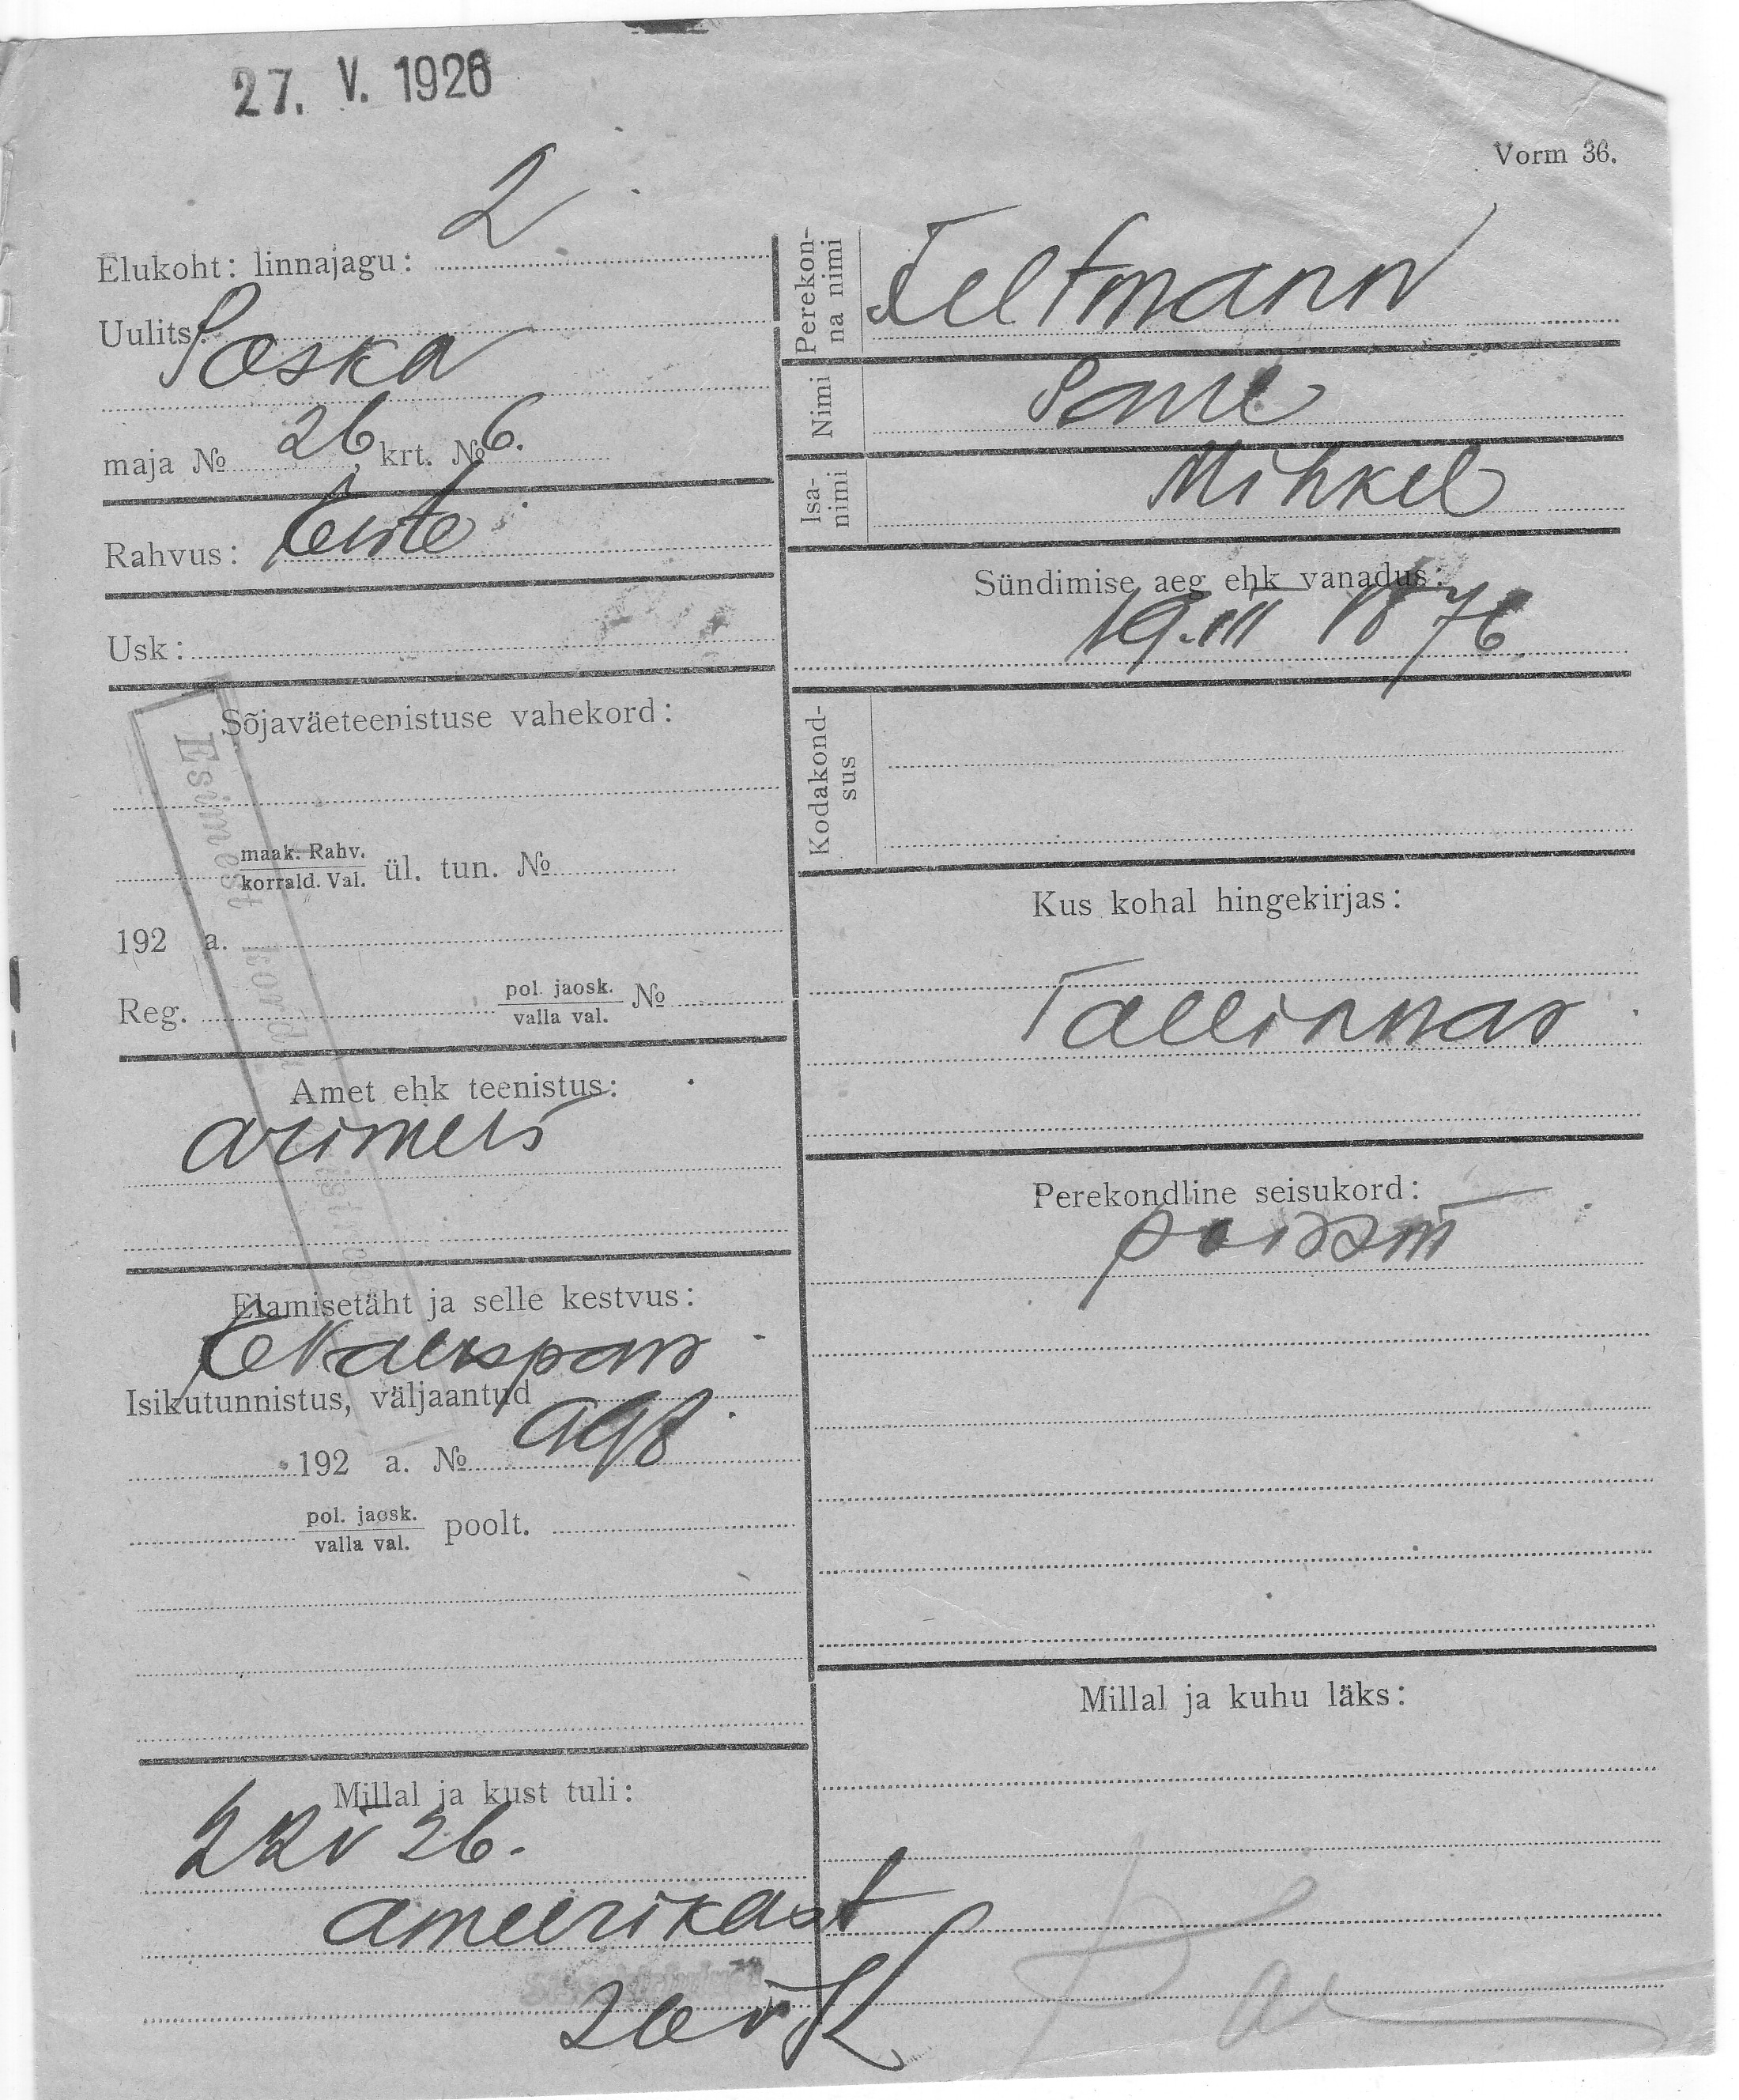 27. V. 1926
Vorm 36.
Elukoht: linnajagu: 2
Uulits: Poska
maja № 26 krt. № 6.
Rahvus: Eesti
Usk:
Sõjaväeteenistuse vahekord:
maak. Rahv.
korrald. Val. ül. tun. №
192 a.
Reg. pol. jaosk. №
valla val.
Amet ehk teenistus:
ärimees
Elamisetäht ja selle kestvus:
Isikutunnistus, väljaantud
192 a. № 998
pol. jaosk. poolt.
valla val.
Millal ja kust tuli:
22 V 26.
ameerikast
Perekon-
na nimi Feltmann
Nimi
Isa-
nimi Mihkel
Sündimise aeg ehk vanadus:
19.III 1876
Kodakond-
sus
Kus kohal hingekirjas:
Tallinnas
Perekondline seisukord:
Millal ja kuhu läks:
Esimest korda